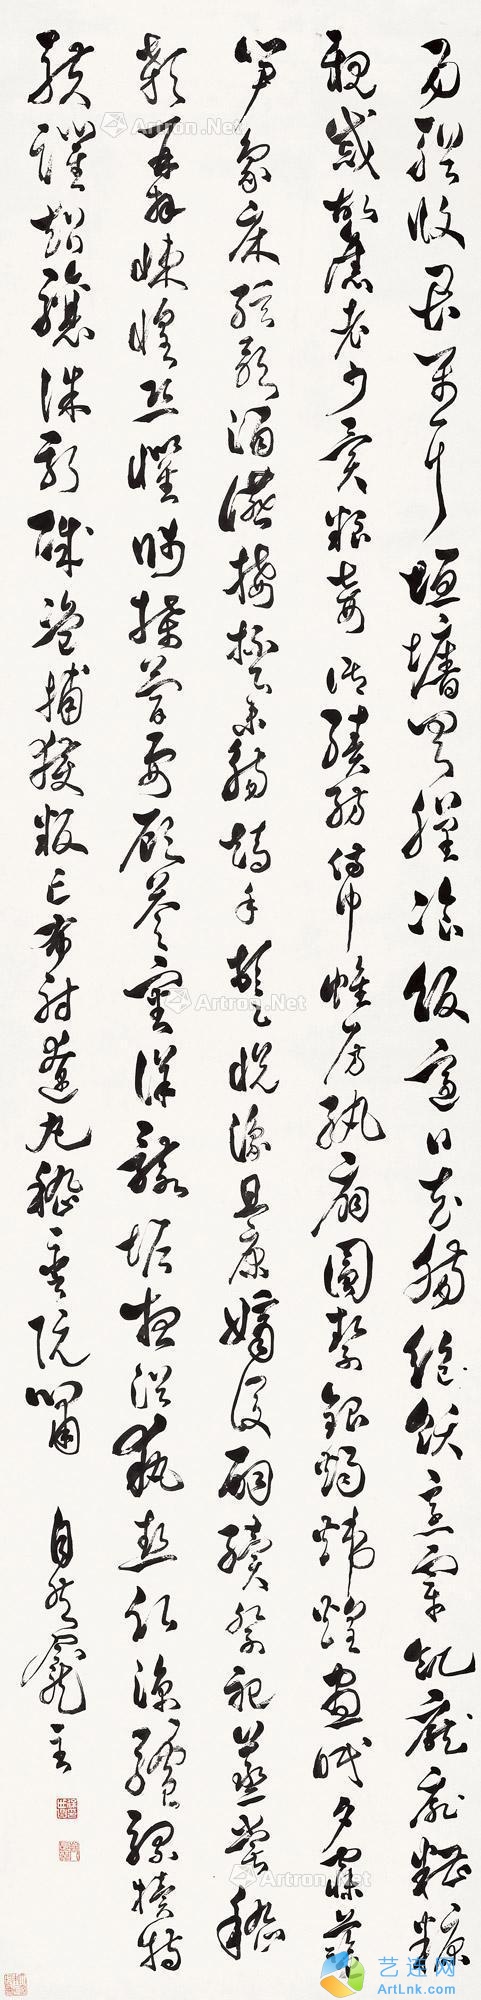 易輶攸畏屬耳垣墻具膳飡飯適口充腸飽飫烹宰飢厭糟糠
親戚故舊老少異糧妾御績紡侍巾帷房紈扇圓潔銀燭煒煌晝眠夕寐藍
笋象床絃歌酒讌接杯舉觴矯手頓足悅豫且康嫡後嗣續祭祀蒸嘗稽
顙再拜悚惶恐懼牋牒簡要顧答審詳骸垢想浴執熱願涼驢騾犢特
駭躍超驤誅斬賊盜捕獲叛亡布射遼丸嵇琴阮嘯 自然龕主
Artron.Net
艺连网
ArtLnk.com